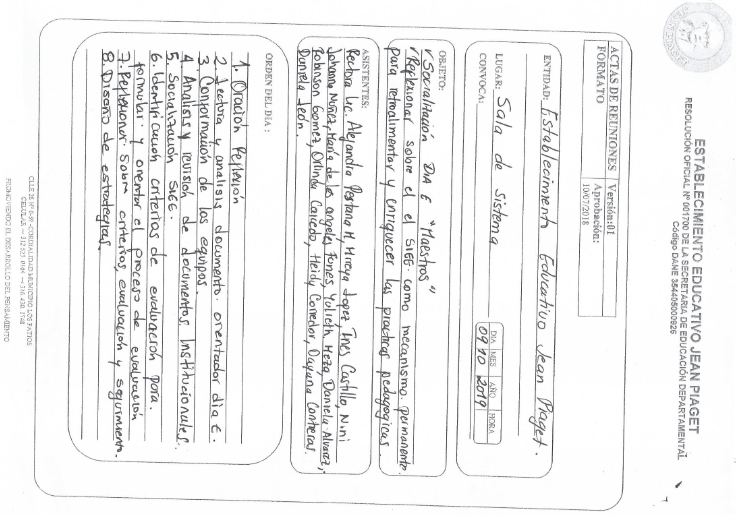 ESTABLECIMIENTO EDUCATIVO JEAN PIAGET
RESOLUCIÓN OFICIAL Nº 001700 DE LA SECRETARIA DE EDUCACIÓN DEPARTAMENTAL
Código DANE 354405000626
ACTAS DE REUNIONES
FORMATO
Versión:01
Aprobación:
10/07/2018
ENTIDAD: Establecimiento Educativo Jean Piaget.
LUGAR: Sala de Sistema
CONVOCA:
DIA MES AÑO HORA
09 10 2019
OBJETO:
✓ Socialización DIA E "Maestros"
✓ Reflexionar sobre el el SIEE. como mecanismo permanente
para retroalimentar y enriquecer las practicas pedagogicas
ASISTENTES:
Rectora Lic. Alejandra Pestana M, Mireya Lopez, Ines Castillo, Nini
Johana Nuñez, Maria de los angeles Tones, Yulieth Meza Daniela Alvarez,
Robinson Gomez, Orlinda Caicedo, Heidy Corredor, Dayana Contreras.
Daniela León.
ORDEN DEL DIA :
1. Oración Reflexión
2. Lectura y analisis documento orientador dia E.
3 Conformación de los equipos.
4 Analisis y revisión de documentos Institucionales.
5. Socialización SIEE.
6. Identificación criterios de evaluación para.
formular y orientar el proceso de evaluación
7. Reflexionar sobre criterios, evaluación y seguimiento.
8. Diseño de estrategias.
CORDIALIDAD MUNICIPIO LOS PATIOS
PROMOVIENDO EL DESARROLLO DEL PENSAMIENTO